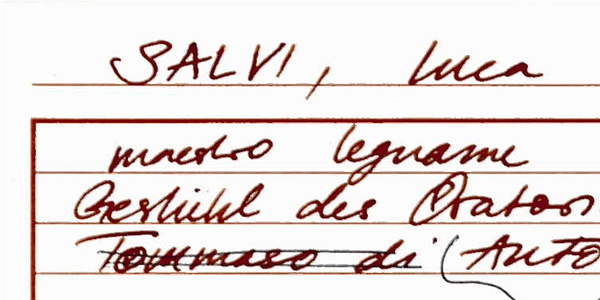 SALVI, Luca
maestro legname
Gestühl des Orator
Tommaso di (Anto